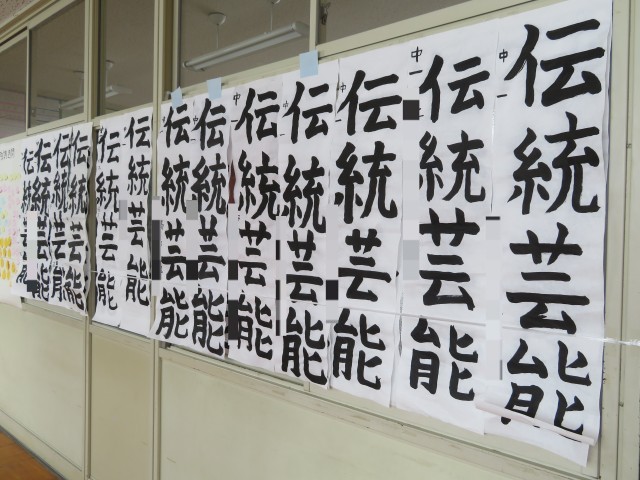 伝統芸能
中一
伝統芸能
中一
伝統芸能
伝統芸能
中一
伝統芸能
中一
伝統芸能
伝統芸能
伝統芸能
伝統芸能
伝統芸能
伝統芸能
伝統芸能
伝統芸能